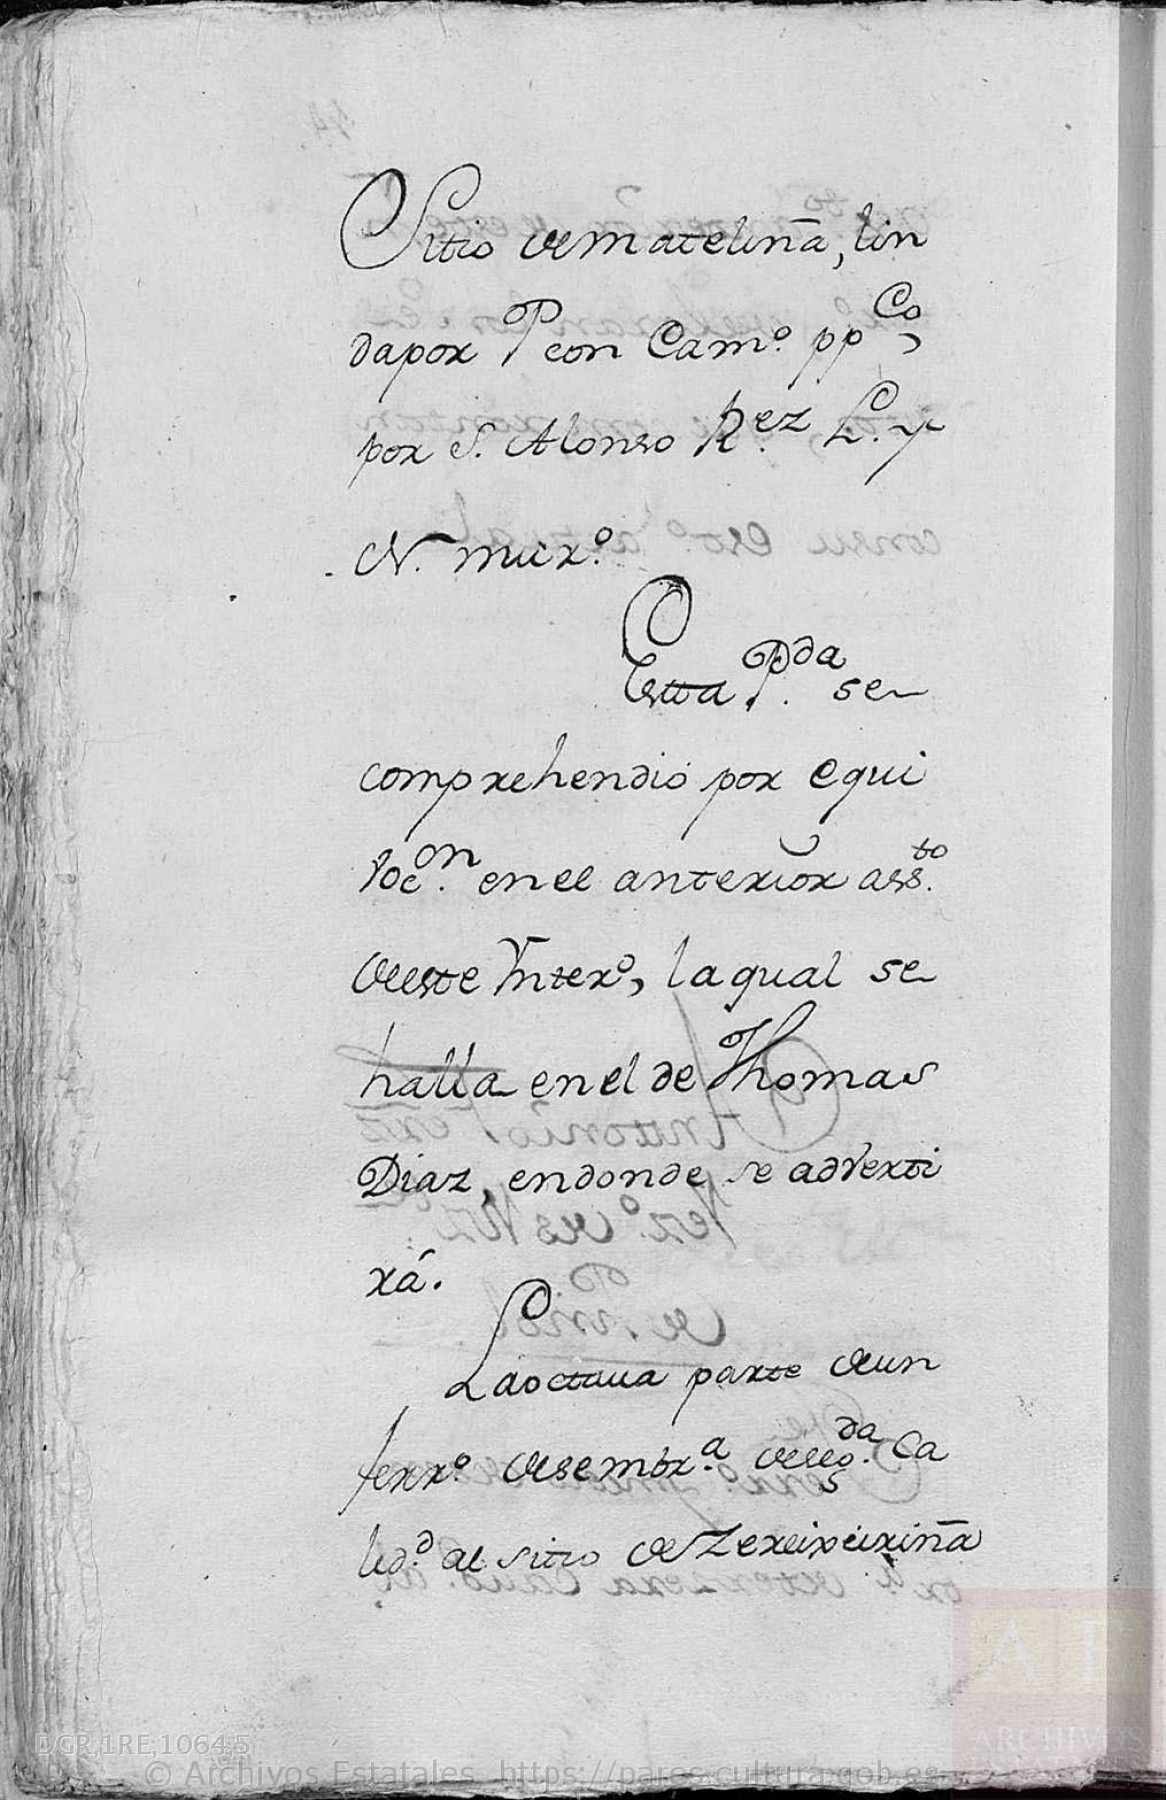 Sitio de matelina, lin
dapor P con Cam.º pp.Co,
por S. Alonso R.ez L. y
N. mur.º
Estta P.da se
comprehendio por equi
voc.on en el anterior ass.to
deeste Ynter.º, la qual se
halla en el de Thomas
Diaz, en donde se adverti
rá.
La octaua parte deun
ferr.º desembr.a deseg.da Ca
lid.d al sitio de Zereixeiriña
DGR,1RE,1064,5
© Archivos Estatales https://pares.cultura.gob.es
AE
ARCHIVOS
ESTATALES